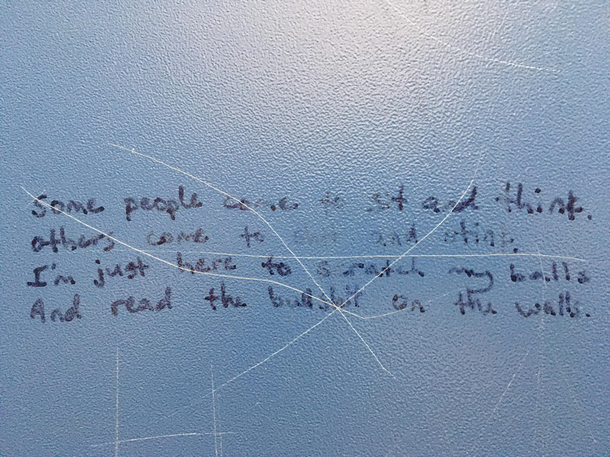 Some people come to sit and think.
others come to shit and stink.
I'm just here to scratch my balls
And read the bullshit on the walls.